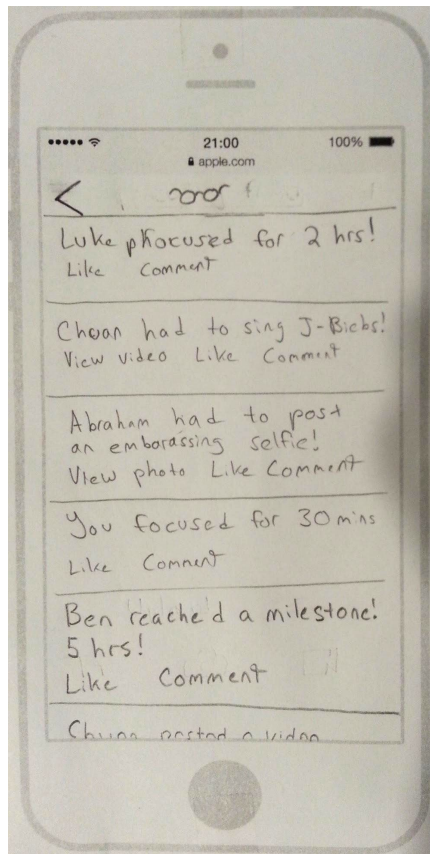 21:00 100%
apple.com
Luke phocused for 2 hrs!
Like Comment
Choan had to sing J-Biebs!
View video Like Comment
Abraham had to post
an emborassing selfie!
View photo Like Comment
You focused for 30 mins
Like Comment
Ben reached a milestone!
5 hrs!
Like Comment